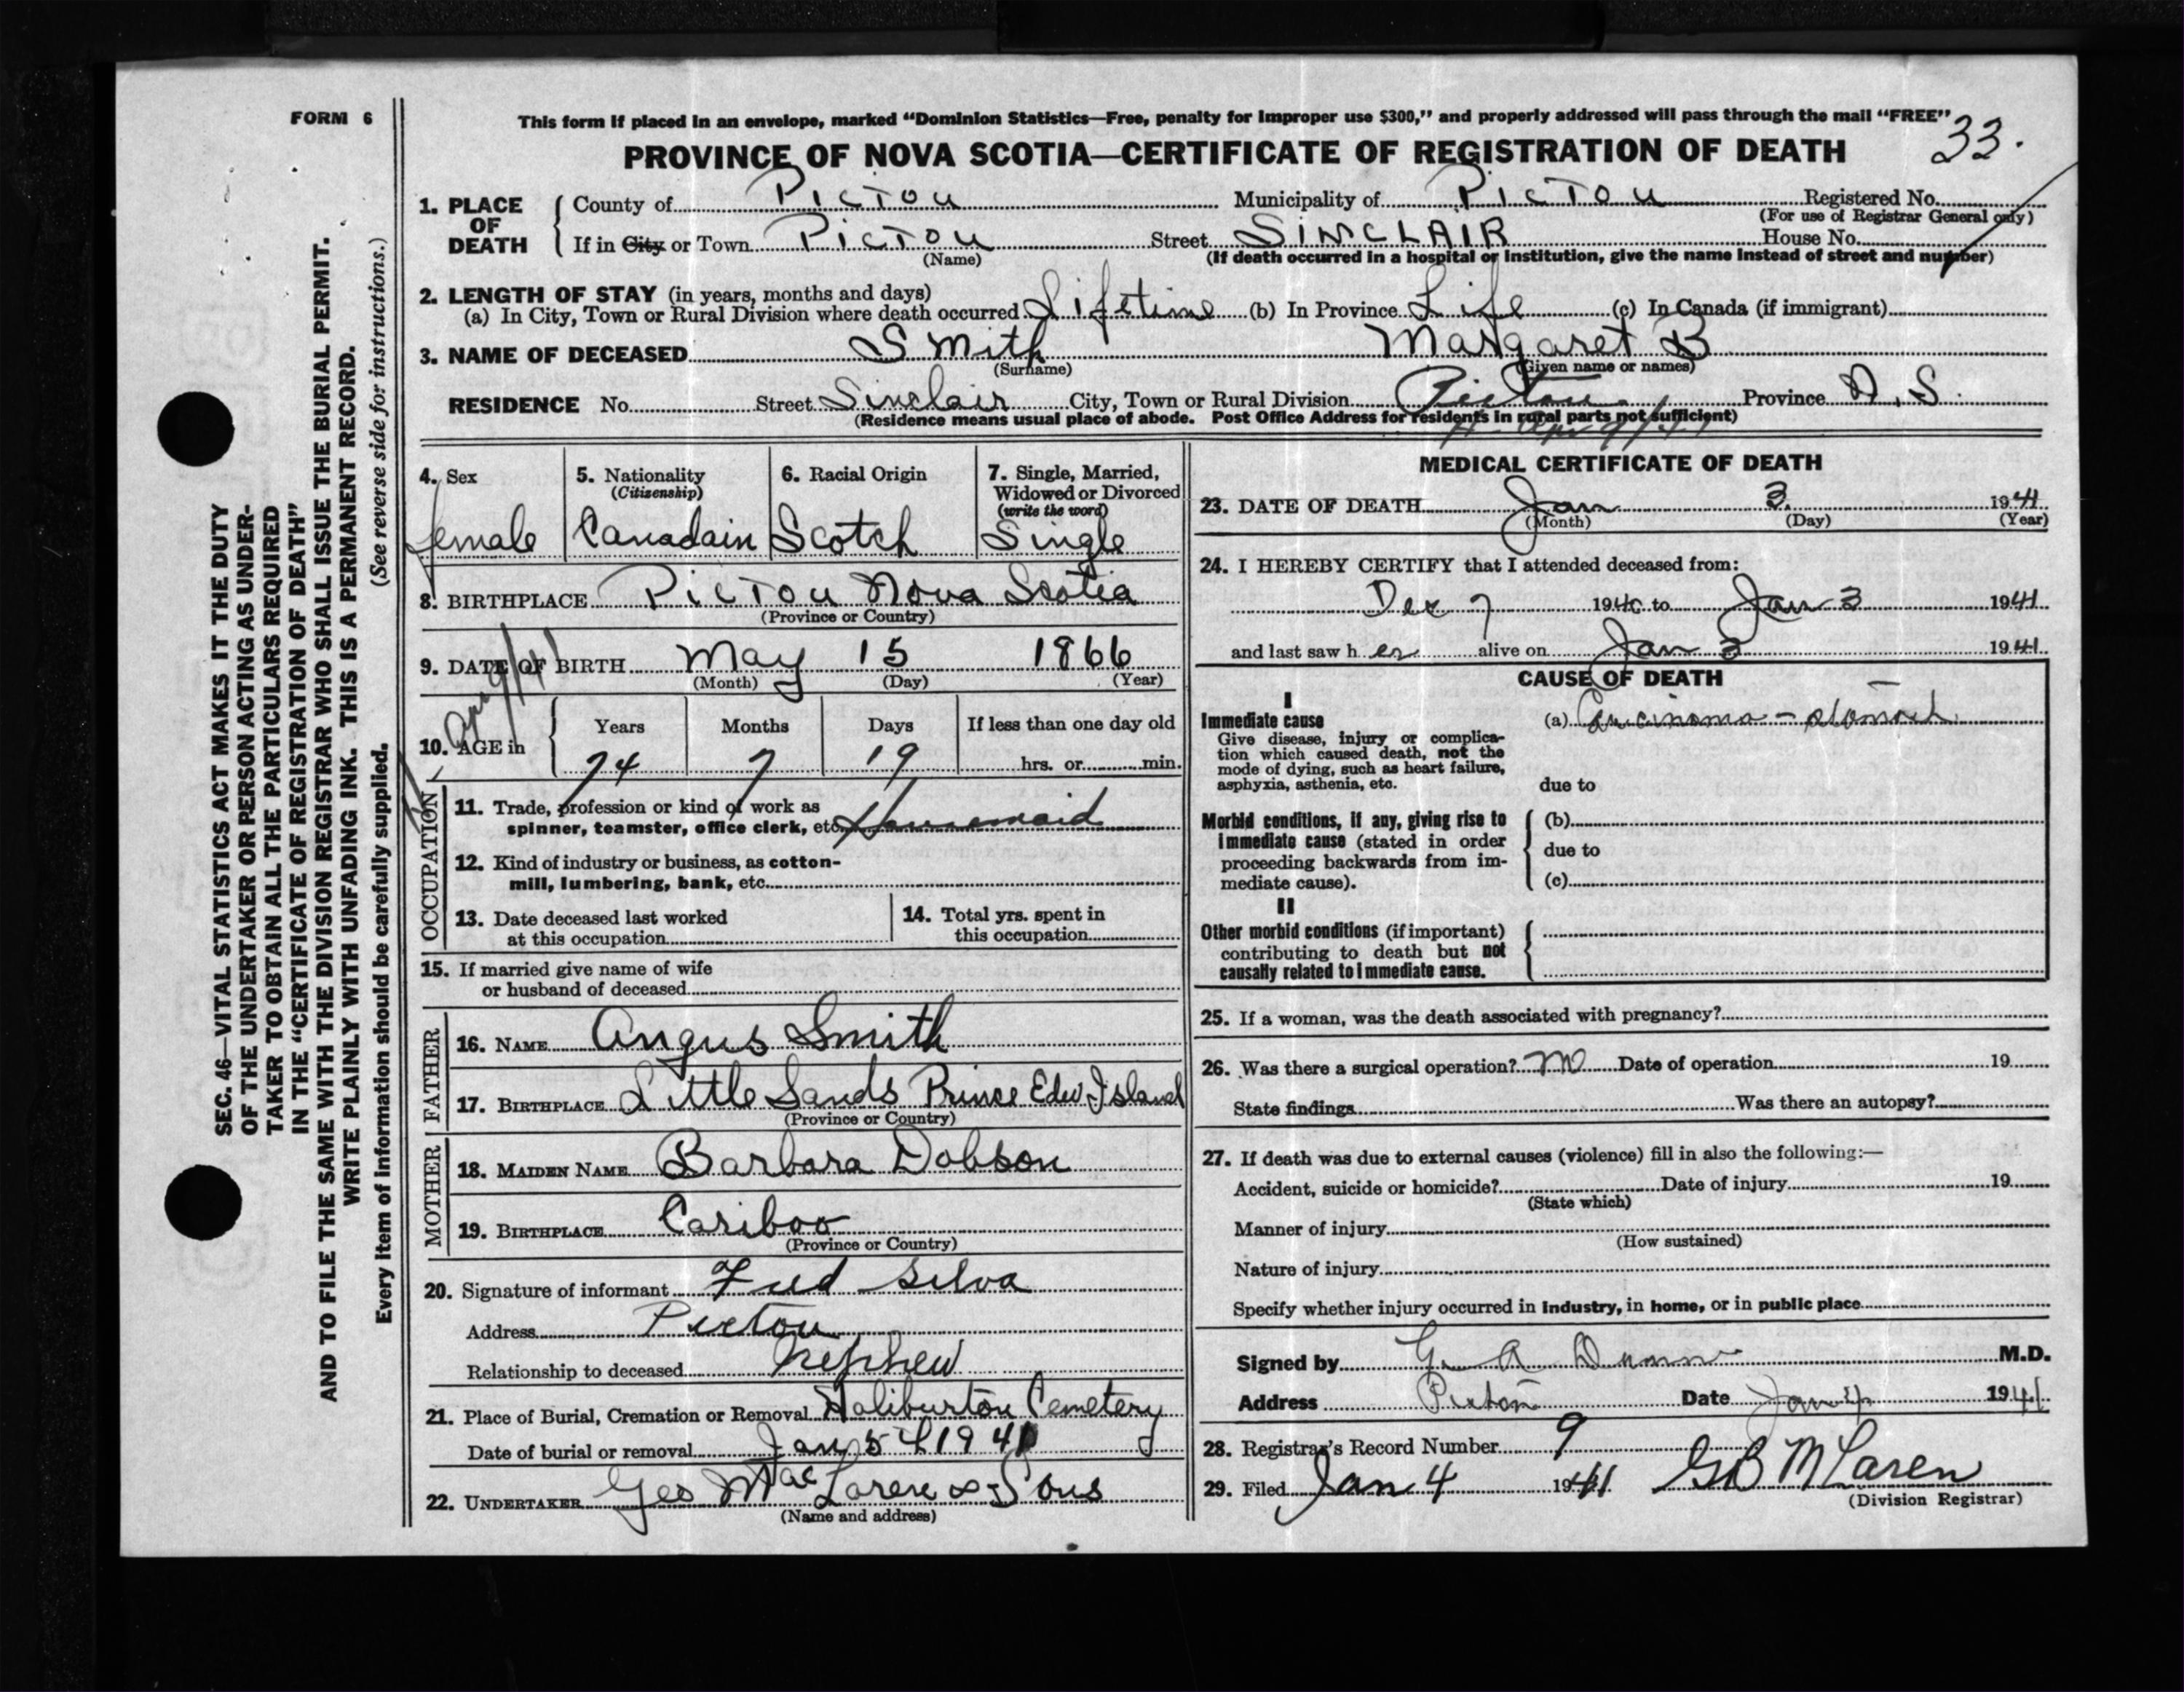 FORM 6
This form if placed in an envelope, marked "Dominion Statistics—Free, penalty for improper use $300," and properly addressed will pass through the mail "FREE"
33.
PROVINCE OF NOVA SCOTIA—CERTIFICATE OF REGISTRATION OF DEATH
1. PLACE OF DEATH
County of Pictou Municipality of Pictou Registered No.
(For use of Registrar General only)
If in City or Town Pictou Street SINCLAIR House No.
(Name) (If death occurred in a hospital or institution, give the name instead of street and number)
2. LENGTH OF STAY (in years, months and days)
(a) In City, Town or Rural Division where death occurred Lifetime (b) In Province Life (c) In Canada (if immigrant)
3. NAME OF DECEASED Smith Margaret B
(Surname) (Given name or names)
RESIDENCE No. Street Sinclair City, Town or Rural Division Pictou Province N.S.
(Residence means usual place of abode. Post Office Address for residents in rural parts not sufficient)
4. Sex
female
5. Nationality
(Citizenship)
Canadain
6. Racial Origin
Scotch
7. Single, Married,
Widowed or Divorced
(write the word)
Single
8. BIRTHPLACE Pictou Nova Scotia
(Province or Country)
9. DATE OF BIRTH May 15 1866
(Month) (Day) (Year)
10. AGE in
Years Months Days If less than one day old
74 7 19 hrs. or min.
OCCUPATION
11. Trade, profession or kind of work as
spinner, teamster, office clerk, etc. Housemaid
12. Kind of industry or business, as cotton-
mill, lumbering, bank, etc.
13. Date deceased last worked
at this occupation
14. Total yrs. spent in
this occupation
15. If married give name of wife
or husband of deceased
FATHER
16. NAME Angus Smith
17. BIRTHPLACE Little Sands Prince Edw Island
(Province or Country)
MOTHER
18. MAIDEN NAME Barbara Dobson
19. BIRTHPLACE Cariboo
(Province or Country)
20. Signature of informant Fred Silva
Address Pictou
Relationship to deceased Nephew
21. Place of Burial, Cremation or Removal Haliburton Cemetery
Date of burial or removal Jan 5th 1941
22. UNDERTAKER Geo MacLaren & Sons
(Name and address)
MEDICAL CERTIFICATE OF DEATH
23. DATE OF DEATH Jan 3. 1941
(Month) (Day) (Year)
24. I HEREBY CERTIFY that I attended deceased from:
Dec 7 1940 to Jan 3 1941
and last saw her alive on Jan 3 1941
CAUSE OF DEATH
I
Immediate cause
Give disease, injury or complica-
tion which caused death, not the
mode of dying, such as heart failure,
asphyxia, asthenia, etc.
(a) Carcinoma - stomach
due to
Morbid conditions, if any, giving rise to
immediate cause (stated in order
proceeding backwards from im-
mediate cause).
(b)
due to
(c)
II
Other morbid conditions (if important)
contributing to death but not
causally related to immediate cause.
25. If a woman, was the death associated with pregnancy?
26. Was there a surgical operation? no Date of operation 19
State findings Was there an autopsy?
27. If death was due to external causes (violence) fill in also the following:—
Accident, suicide or homicide? Date of injury 19
(State which)
Manner of injury
(How sustained)
Nature of injury
Specify whether injury occurred in industry, in home, or in public place
Signed by G. A. Dunn M.D.
Address Pictou Date Jan 4 1941
28. Registrar's Record Number 9
29. Filed Jan 4 1941 GB McLaren
(Division Registrar)
SEC. 46—VITAL STATISTICS ACT MAKES IT THE DUTY
OF THE UNDERTAKER OR PERSON ACTING AS UNDER-
TAKER TO OBTAIN ALL THE PARTICULARS REQUIRED
IN THE "CERTIFICATE OF REGISTRATION OF DEATH"
AND TO FILE THE SAME WITH THE DIVISION REGISTRAR WHO SHALL ISSUE THE BURIAL PERMIT.
WRITE PLAINLY WITH UNFADING INK. THIS IS A PERMANENT RECORD.
Every item of information should be carefully supplied. (See reverse side for instructions.)